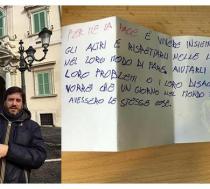 PER ME LA PACE È VIVERE INSIEME
GLI ALTRI E RISPETTARLI NELLE L
NEL LORO MODO DI FARE, AIUTARLI
LORO PROBLEMI O I LORO DISA
VORREI CHE UN GIORNO NEL MONDO
AVESSERO LE STESSE COSE.